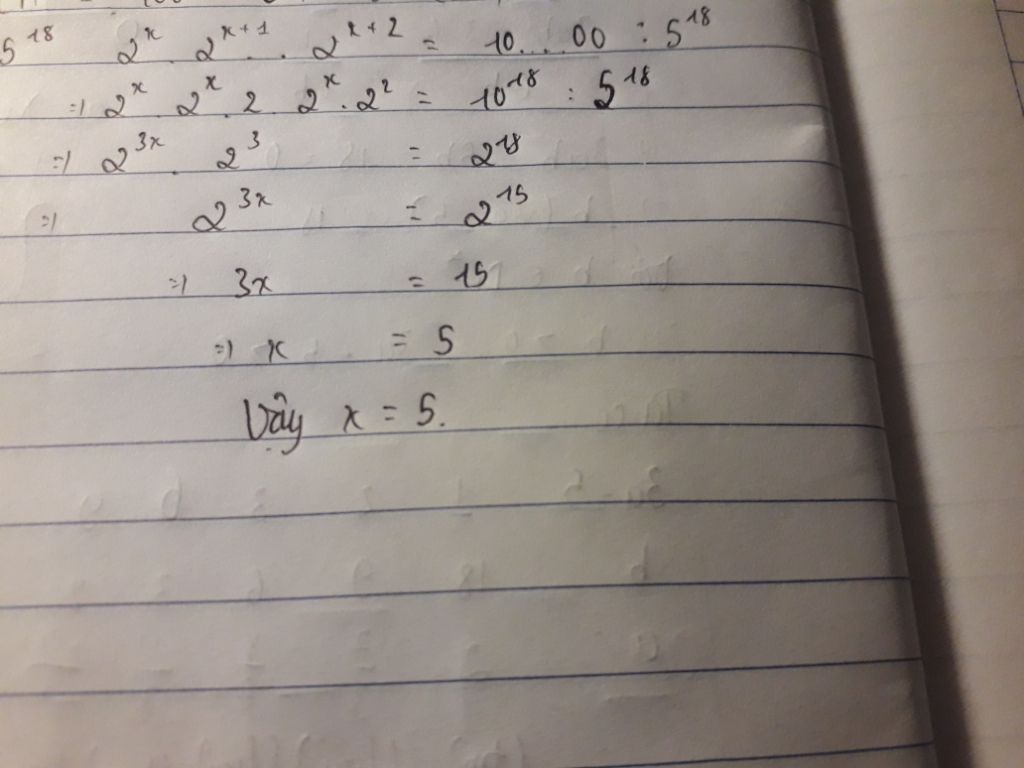 5^18 2^x . 2^(x+1) . . 2^(x+2) = 10...00 : 5^18
=> 2^x 2^x . 2 2^x . 2^2 = 10^18 : 5^18
=> 2^(3x) . 2^3 = 2^18
=> 2^(3x) = 2^15
=> 3x = 15
=> x = 5
Vậy x = 5.